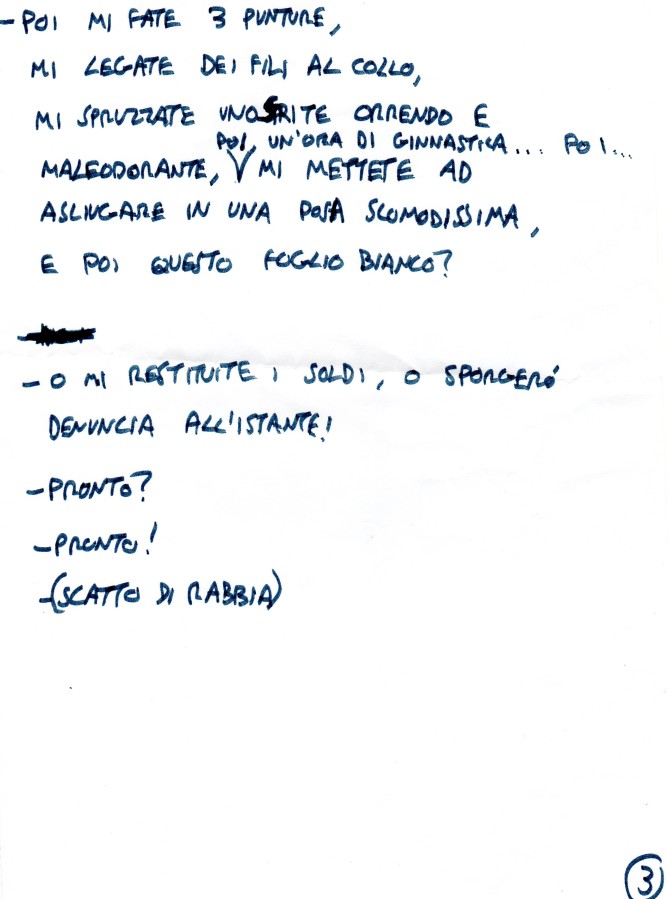 - POI MI FATE 3 PUNTURE,
MI LEGATE DEI FILI AL COLLO,
MI SPRUZZATE UNO SRITE ORRENDO E
POI, UN'ORA DI GINNASTICA... POI...
MALEODORANTE, V MI METTETE AD
ASCIUGARE IN UNA POSA SCOMODISSIMA,
E POI QUESTO FOGLIO BIANCO?
- O MI RESTITUITE I SOLDI, O SPORGERÓ
DENUNCIA ALL'ISTANTE!
- PRONTO?
- PRONTO!
- (SCATTO DI RABBIA)
3